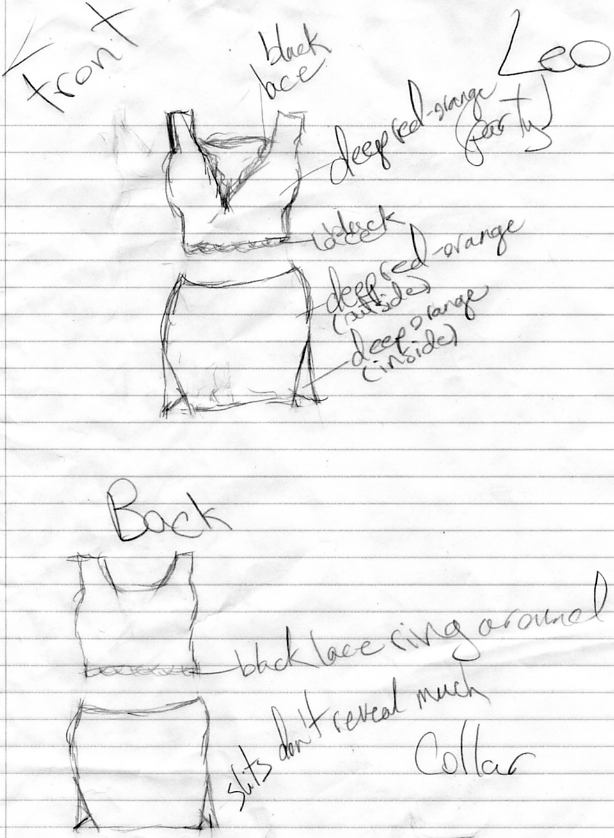 Front
Leo
(party)
black
lace
deep red-orange
black
lace
deep red-orange
(outside)
deep orange
(inside)
Back
black lace ring around
slits don't reveal much
Collar